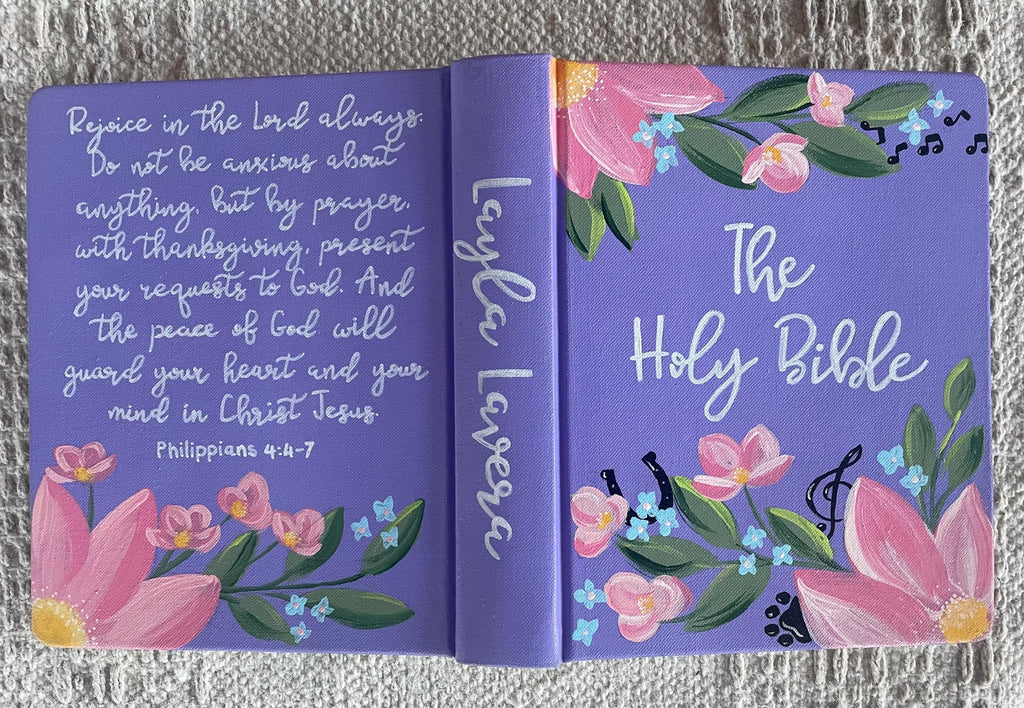 Rejoice in the Lord always.
Do not be anxious about
anything, but by prayer,
with thanksgiving, present
your requests to God. And
the peace of God will
guard your heart and your
mind in Christ Jesus.
Philippians 4:4-7
Layla Lavera
The
Holy Bible